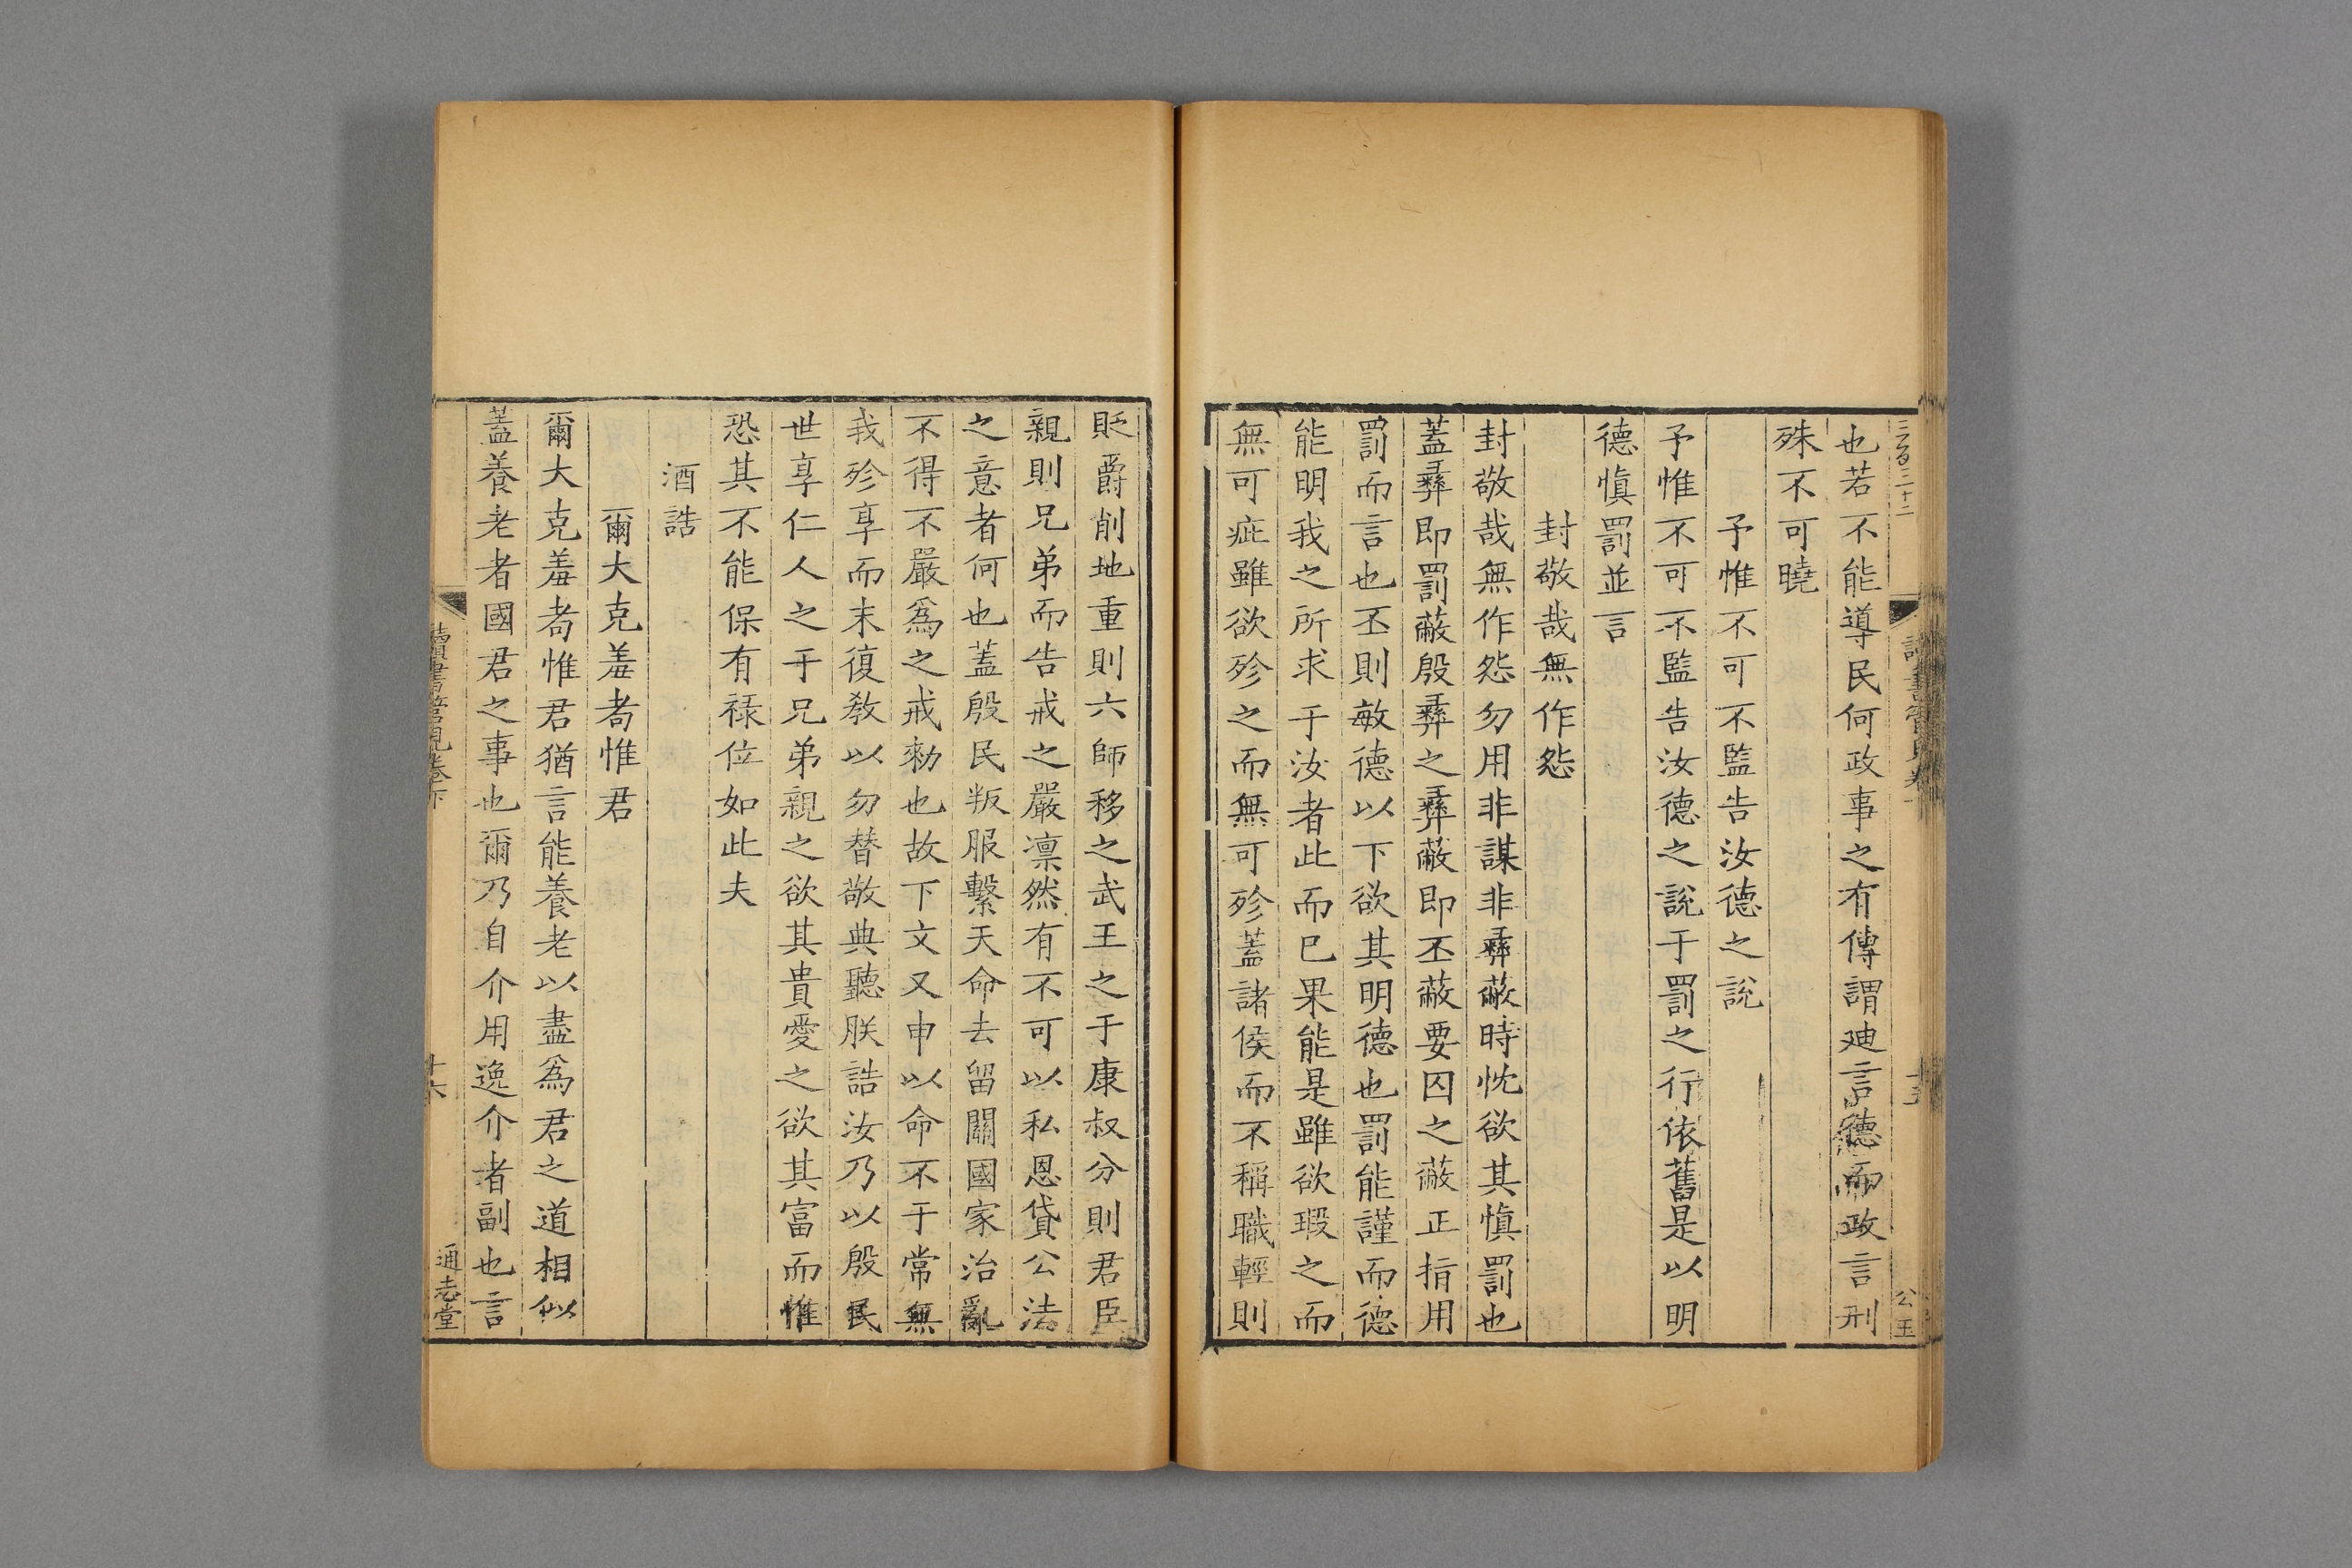 三百二十二
公玉
也若不能導民何政事之有傳謂廸言德而政言刑
殊不可曉
予惟不可不監告汝德之說
予惟不可不監告汝德之說于罰之行依舊是以明
德愼罰並言
封敬哉無作怨
封敬哉無作怨勿用非謀非彞蔽時忱欲其愼罰也
蓋彞即罰蔽殷彞之彞蔽即丕蔽要囚之蔽正指用
罰而言也丕則敏德以下欲其明德也罰能謹而德
能明我之所求于汝者此而已果能是雖欲瑕之而
無可疵雖欲殄之而無可殄蓋諸侯而不稱職輕則
貶爵削地重則六師移之武王之于康叔分則君臣
親則兄弟而告戒之嚴凛然有不可以私恩貸公法
之意者何也蓋殷民叛服繫天命去留關國家治亂
不得不嚴爲之戒勑也故下文又申以命不于常無
我殄享而末復敎以勿替敬典聽朕誥汝乃以殷民
世享仁人之于兄弟親之欲其貴愛之欲其富而惟
恐其不能保有祿位如此夫
酒誥
爾大克羞耇惟君
爾大克羞耇惟君猶言能養老以盡爲君之道相似
蓋養老者國君之事也爾乃自介用逸介者副也言
讀書管見卷下
十六
通志堂